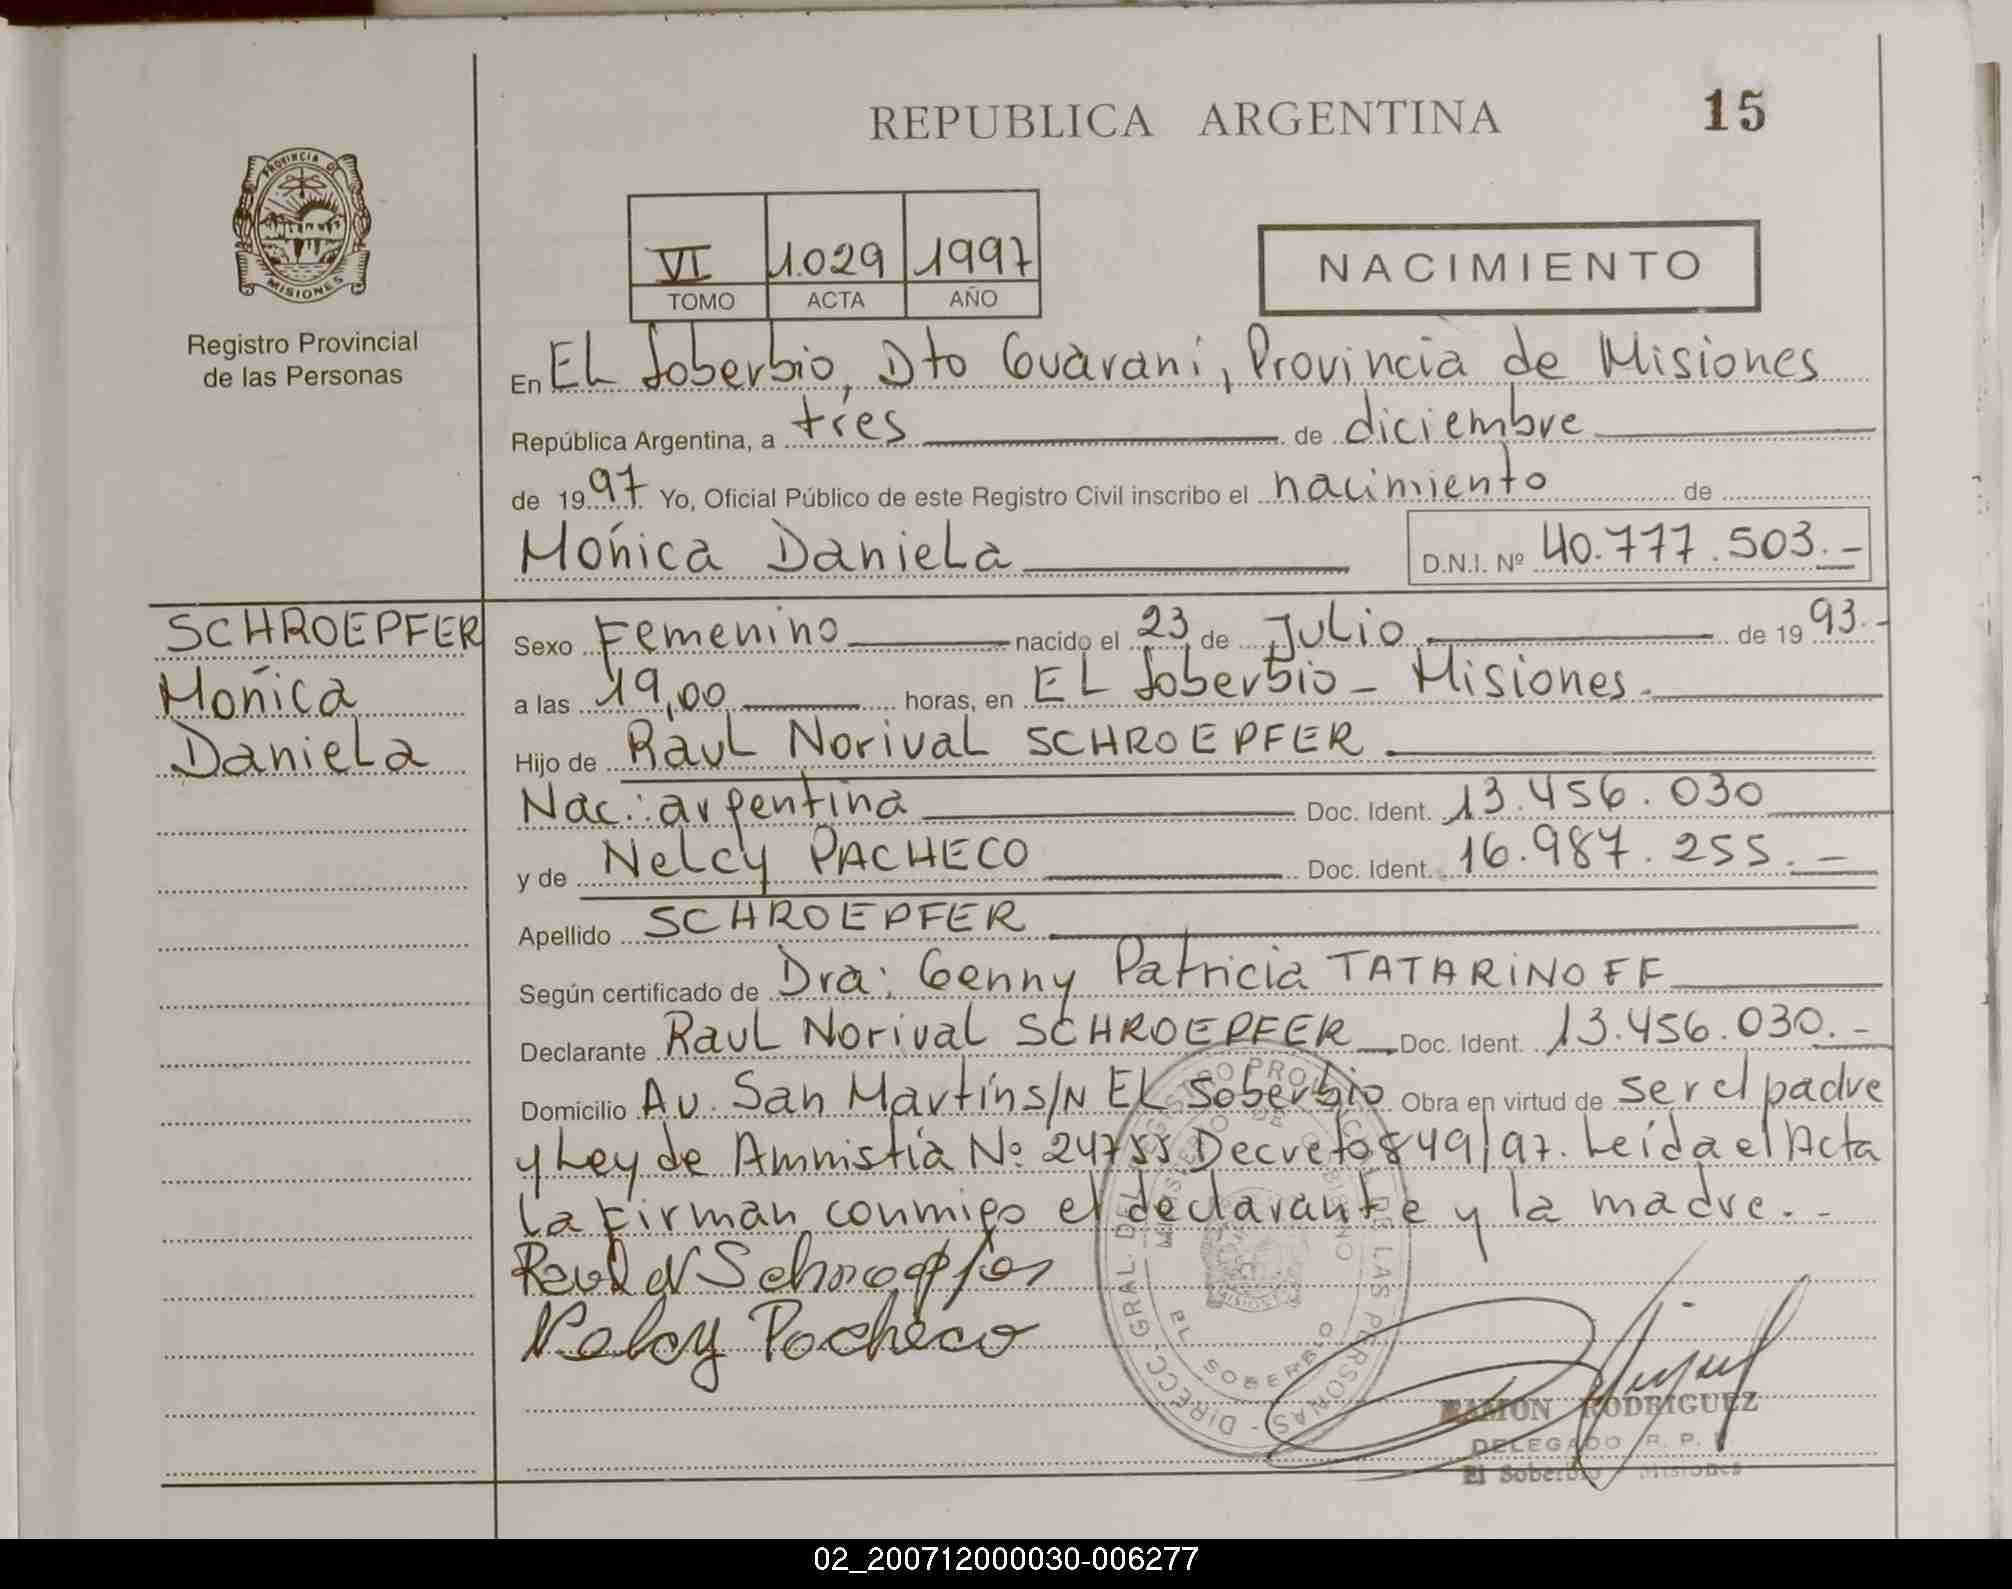 REPUBLICA ARGENTINA
15
PROVINCIA DE
MISIONES
Registro Provincial
de las Personas
VI 1.029 1997
TOMO ACTA AÑO
NACIMIENTO
En EL Soberbio, Dto Guarani, Provincia de Misiones
República Argentina, a tres de diciembre
de 1997 Yo, Oficial Público de este Registro Civil inscribo el nacimiento de
Mónica Daniela
D.N.I. Nº 40.777.503.-
SCHROEPFER
Mónica
Daniela
Sexo Femenino nacido el 23 de Julio de 1993.-
a las 19,00 horas, en EL Soberbio - Misiones.
Hijo de Raul Norival SCHROEPFER
Nac.: argentina Doc. Ident. 13.456.030
y de Nelcy PACHECO Doc. Ident. 16.987.255.-
Apellido SCHROEPFER
Según certificado de Dra: Genny Patricia TATARINOFF
Declarante Raul Norival SCHROEPFER Doc. Ident. 13.456.030.-
Domicilio Av. San Martín s/N EL Soberbio Obra en virtud de ser el padre
y Ley de Amnistía Nº 24755 Decreto 849/97. Leída el Acta
la firman conmigo el declarante y la madre.-
Raul N Schroepfer
Nelcy Pacheco
DIRECC. GRAL. DEL REGISTRO PROVINCIAL DE LAS PERSONAS
MINISTERIO DE GOBIERNO
MISIONES
EL SOBERBIO
RAMON RODRIGUEZ
DELEGADO R. P. P.
El Soberbio - Misiones
02_200712000030-006277